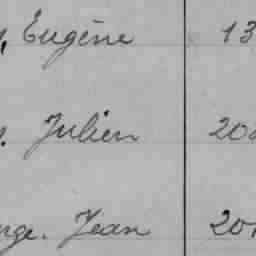 , Eugène 13
. Julien 20
rge. Jean 20